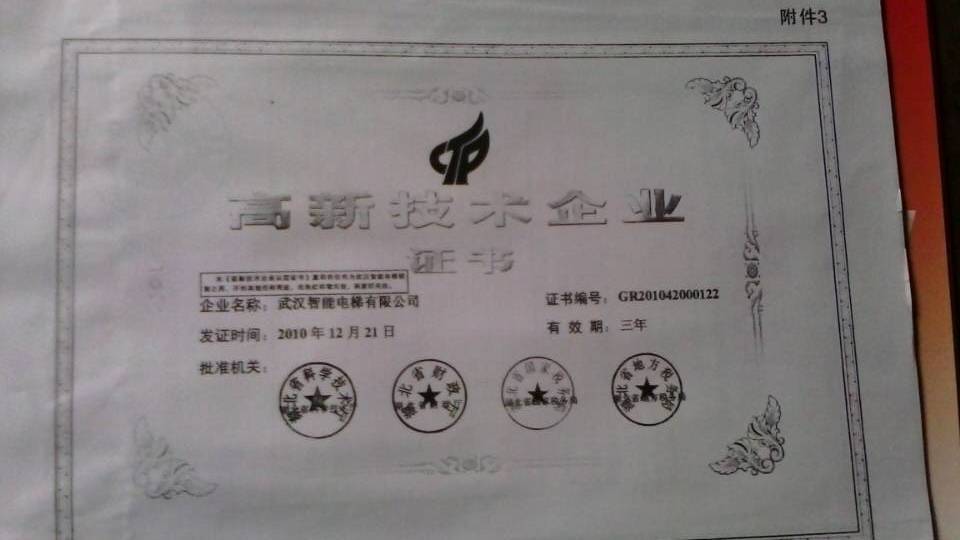 附件3
高新技术企业
证书
企业名称：武汉智能电梯有限公司
证书编号：GR201042000122
发证时间：2010年12月21日
有效期：三年
批准机关：
湖北省科学技术厅
湖北省财政厅
湖北省国家税务局
湖北省地方税务局